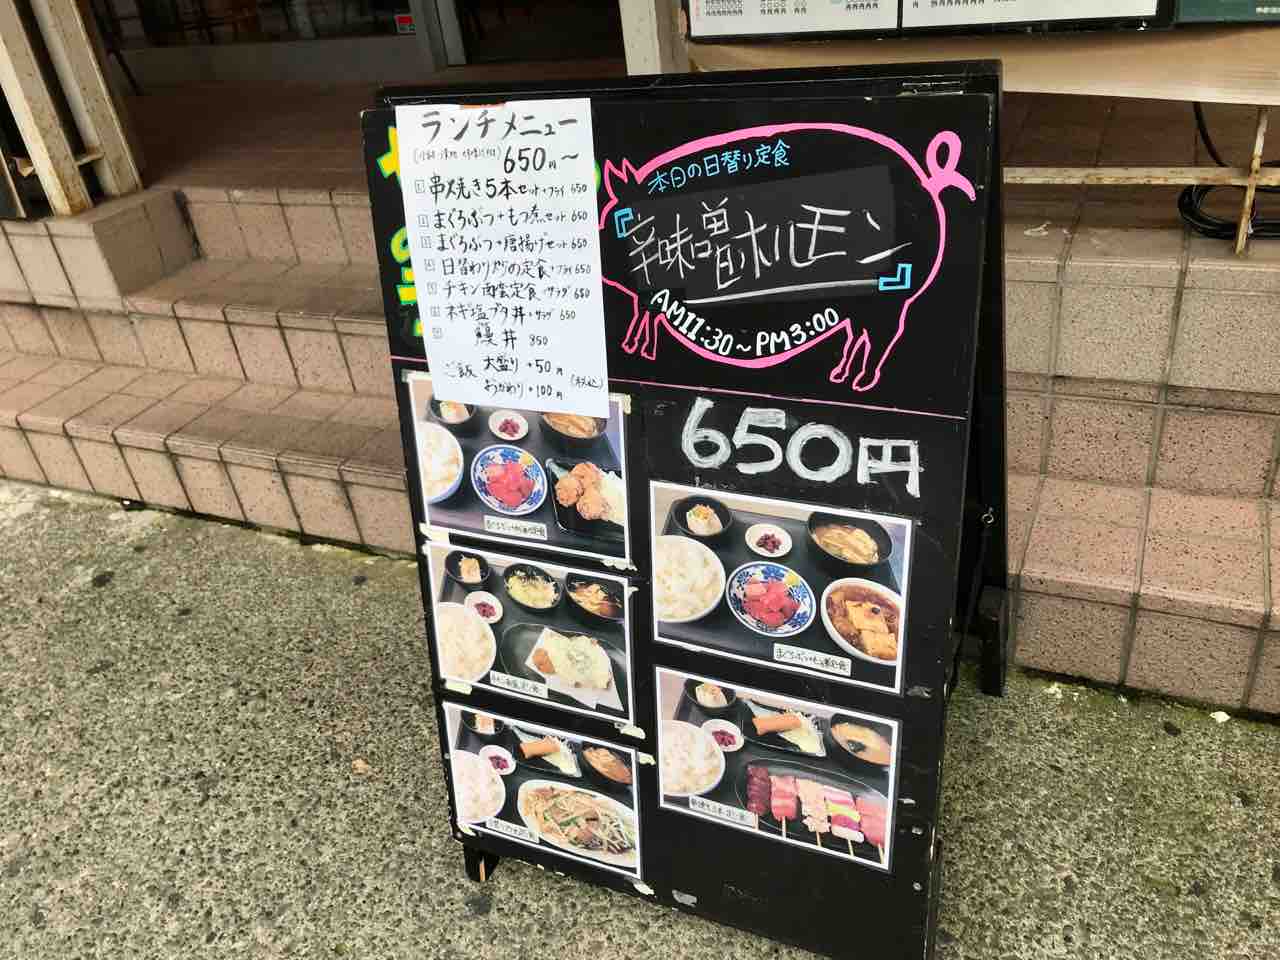 ランチメニュー
650円〜
串焼き5本セット+フライ 650
まぐろぶつ+もつ煮セット 650
まぐろぶつ+唐揚げセット 650
日替わり炒め定食+フライ 650
チキン南蛮定食 サラダ 650
ネギ塩ブタ丼+サラダ 650
鰻丼 850
ご飯 大盛り +50円
おかわり +100円 (税込)
本日の日替り定食
『辛味噌ホルモン』
AM11:30〜PM3:00
650円